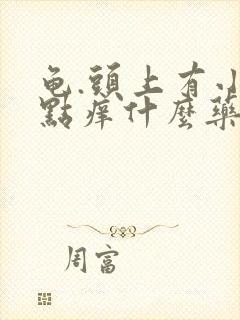 龟.頭上有小
點痒什麼藥
周富